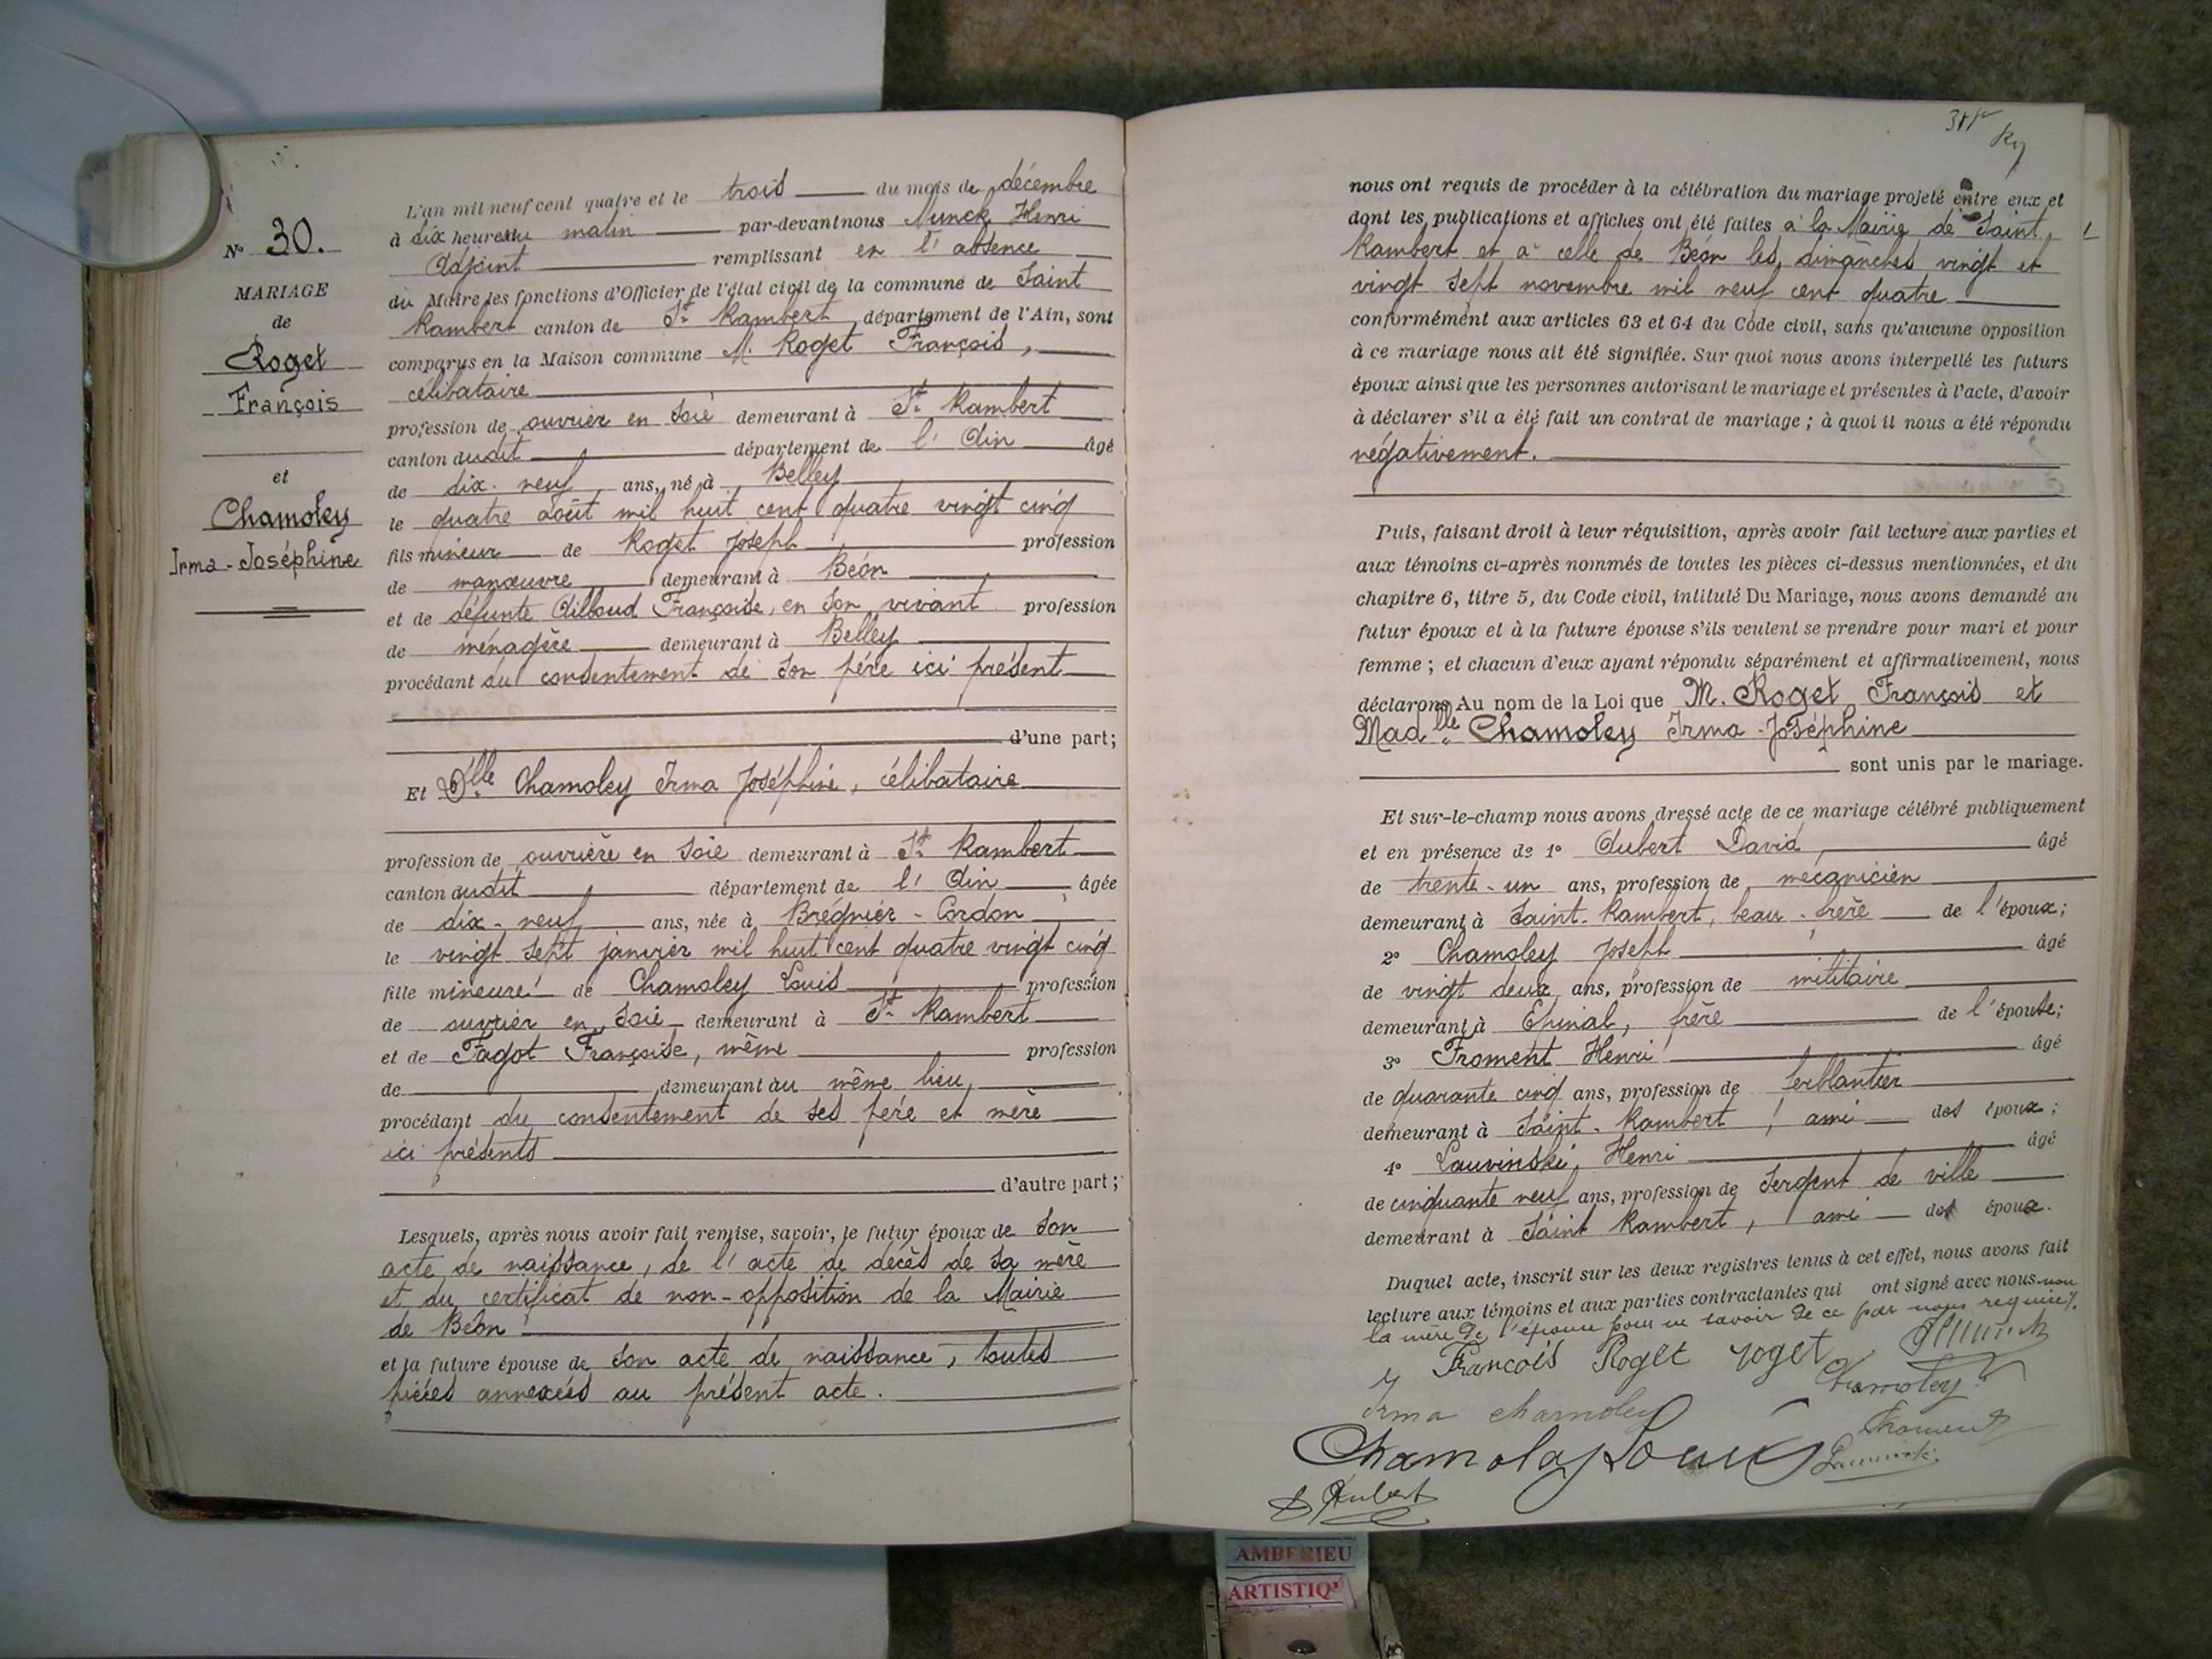 N° 30.
MARIAGE
de
Roget
François
et
Chamoley
Irma-Joséphine
L'an mil neuf cent quatre et le trois du mois de décembre
à dix heures du matin par-devant nous Munck Henri
Adjoint remplissant en l'absence
du Maire les fonctions d'Officier de l'état civil de la commune de Saint
Rambert canton de St Rambert département de l'Ain, sont
comparus en la Maison commune M. Roget François,
célibataire
profession de ouvrier en soie demeurant à St Rambert
canton dudit département de l'Ain âgé
de dix-neuf ans, né à Belley
le quatre août mil huit cent quatre vingt cinq
fils mineur de Roget Joseph profession
de manœuvre demeurant à Béon
et de défunte Ailloud Françoise, en son vivant profession
de ménagère demeurant à Belley
procédant du consentement de son père ici présent
d'une part;
Et Dlle Chamoley Irma Joséphine, célibataire
profession de ouvrière en soie demeurant à St Rambert
canton dudit département de l'Ain âgée
de dix-neuf ans, née à Brégnier-Cordon
le vingt sept janvier mil huit cent quatre vingt cinq
fille mineure de Chamoley Louis profession
de ouvrier en soie demeurant à St Rambert
et de Fagot Françoise, même profession
de demeurant au même lieu,
procédant du consentement de ses père et mère
ici présents
d'autre part;
Lesquels, après nous avoir fait remise, savoir, le futur époux de son
acte de naissance, de l'acte de décès de sa mère
et du certificat de non-opposition de la Mairie
de Béon
et la future épouse de son acte de naissance, toutes
pièces annexées au présent acte.
nous ont requis de procéder à la célébration du mariage projeté entre eux et
dont les publications et affiches ont été faites à la Mairie de Saint
Rambert et à celle de Béon les dimanches vingt et
vingt sept novembre mil neuf cent quatre
conformément aux articles 63 et 64 du Code civil, sans qu'aucune opposition
à ce mariage nous ait été signifiée. Sur quoi nous avons interpellé les futurs
époux ainsi que les personnes autorisant le mariage et présentes à l'acte, d'avoir
à déclarer s'il a été fait un contrat de mariage; à quoi il nous a été répondu
négativement.
Puis, faisant droit à leur réquisition, après avoir fait lecture aux parties et
aux témoins ci-après nommés de toutes les pièces ci-dessus mentionnées, et du
chapitre 6, titre 5, du Code civil, intitulé Du Mariage, nous avons demandé au
futur époux et à la future épouse s'ils veulent se prendre pour mari et pour
femme; et chacun d'eux ayant répondu séparément et affirmativement, nous
déclarons Au nom de la Loi que M. Roget François et
Madlle Chamoley Irma-Joséphine
sont unis par le mariage.
Et sur-le-champ nous avons dressé acte de ce mariage célébré publiquement
et en présence de 1° Aubert David, âgé
de trente-un ans, profession de mécanicien
demeurant à Saint-Rambert, beau-frère de l'époux;
2° Chamoley Joseph âgé
de vingt deux ans, profession de militaire
demeurant à Épinal, frère de l'épouse;
3° Froment Henri âgé
de quarante cinq ans, profession de ferblantier
demeurant à Saint-Rambert, ami des époux;
4° Lauvinski Henri âgé
de cinquante neuf ans, profession de sergent de ville
demeurant à Saint Rambert, ami des époux.
Duquel acte, inscrit sur les deux registres tenus à cet effet, nous avons fait
lecture aux témoins et aux parties contractantes qui ont signé avec nous non
la mère de l'épouse pour ne savoir de ce par nous requise.
François Roget roget
Chamoley
Irma chamoley
Froment
Chamolay Louis
D Aubert
AMBERIEU
ARTISTIQ